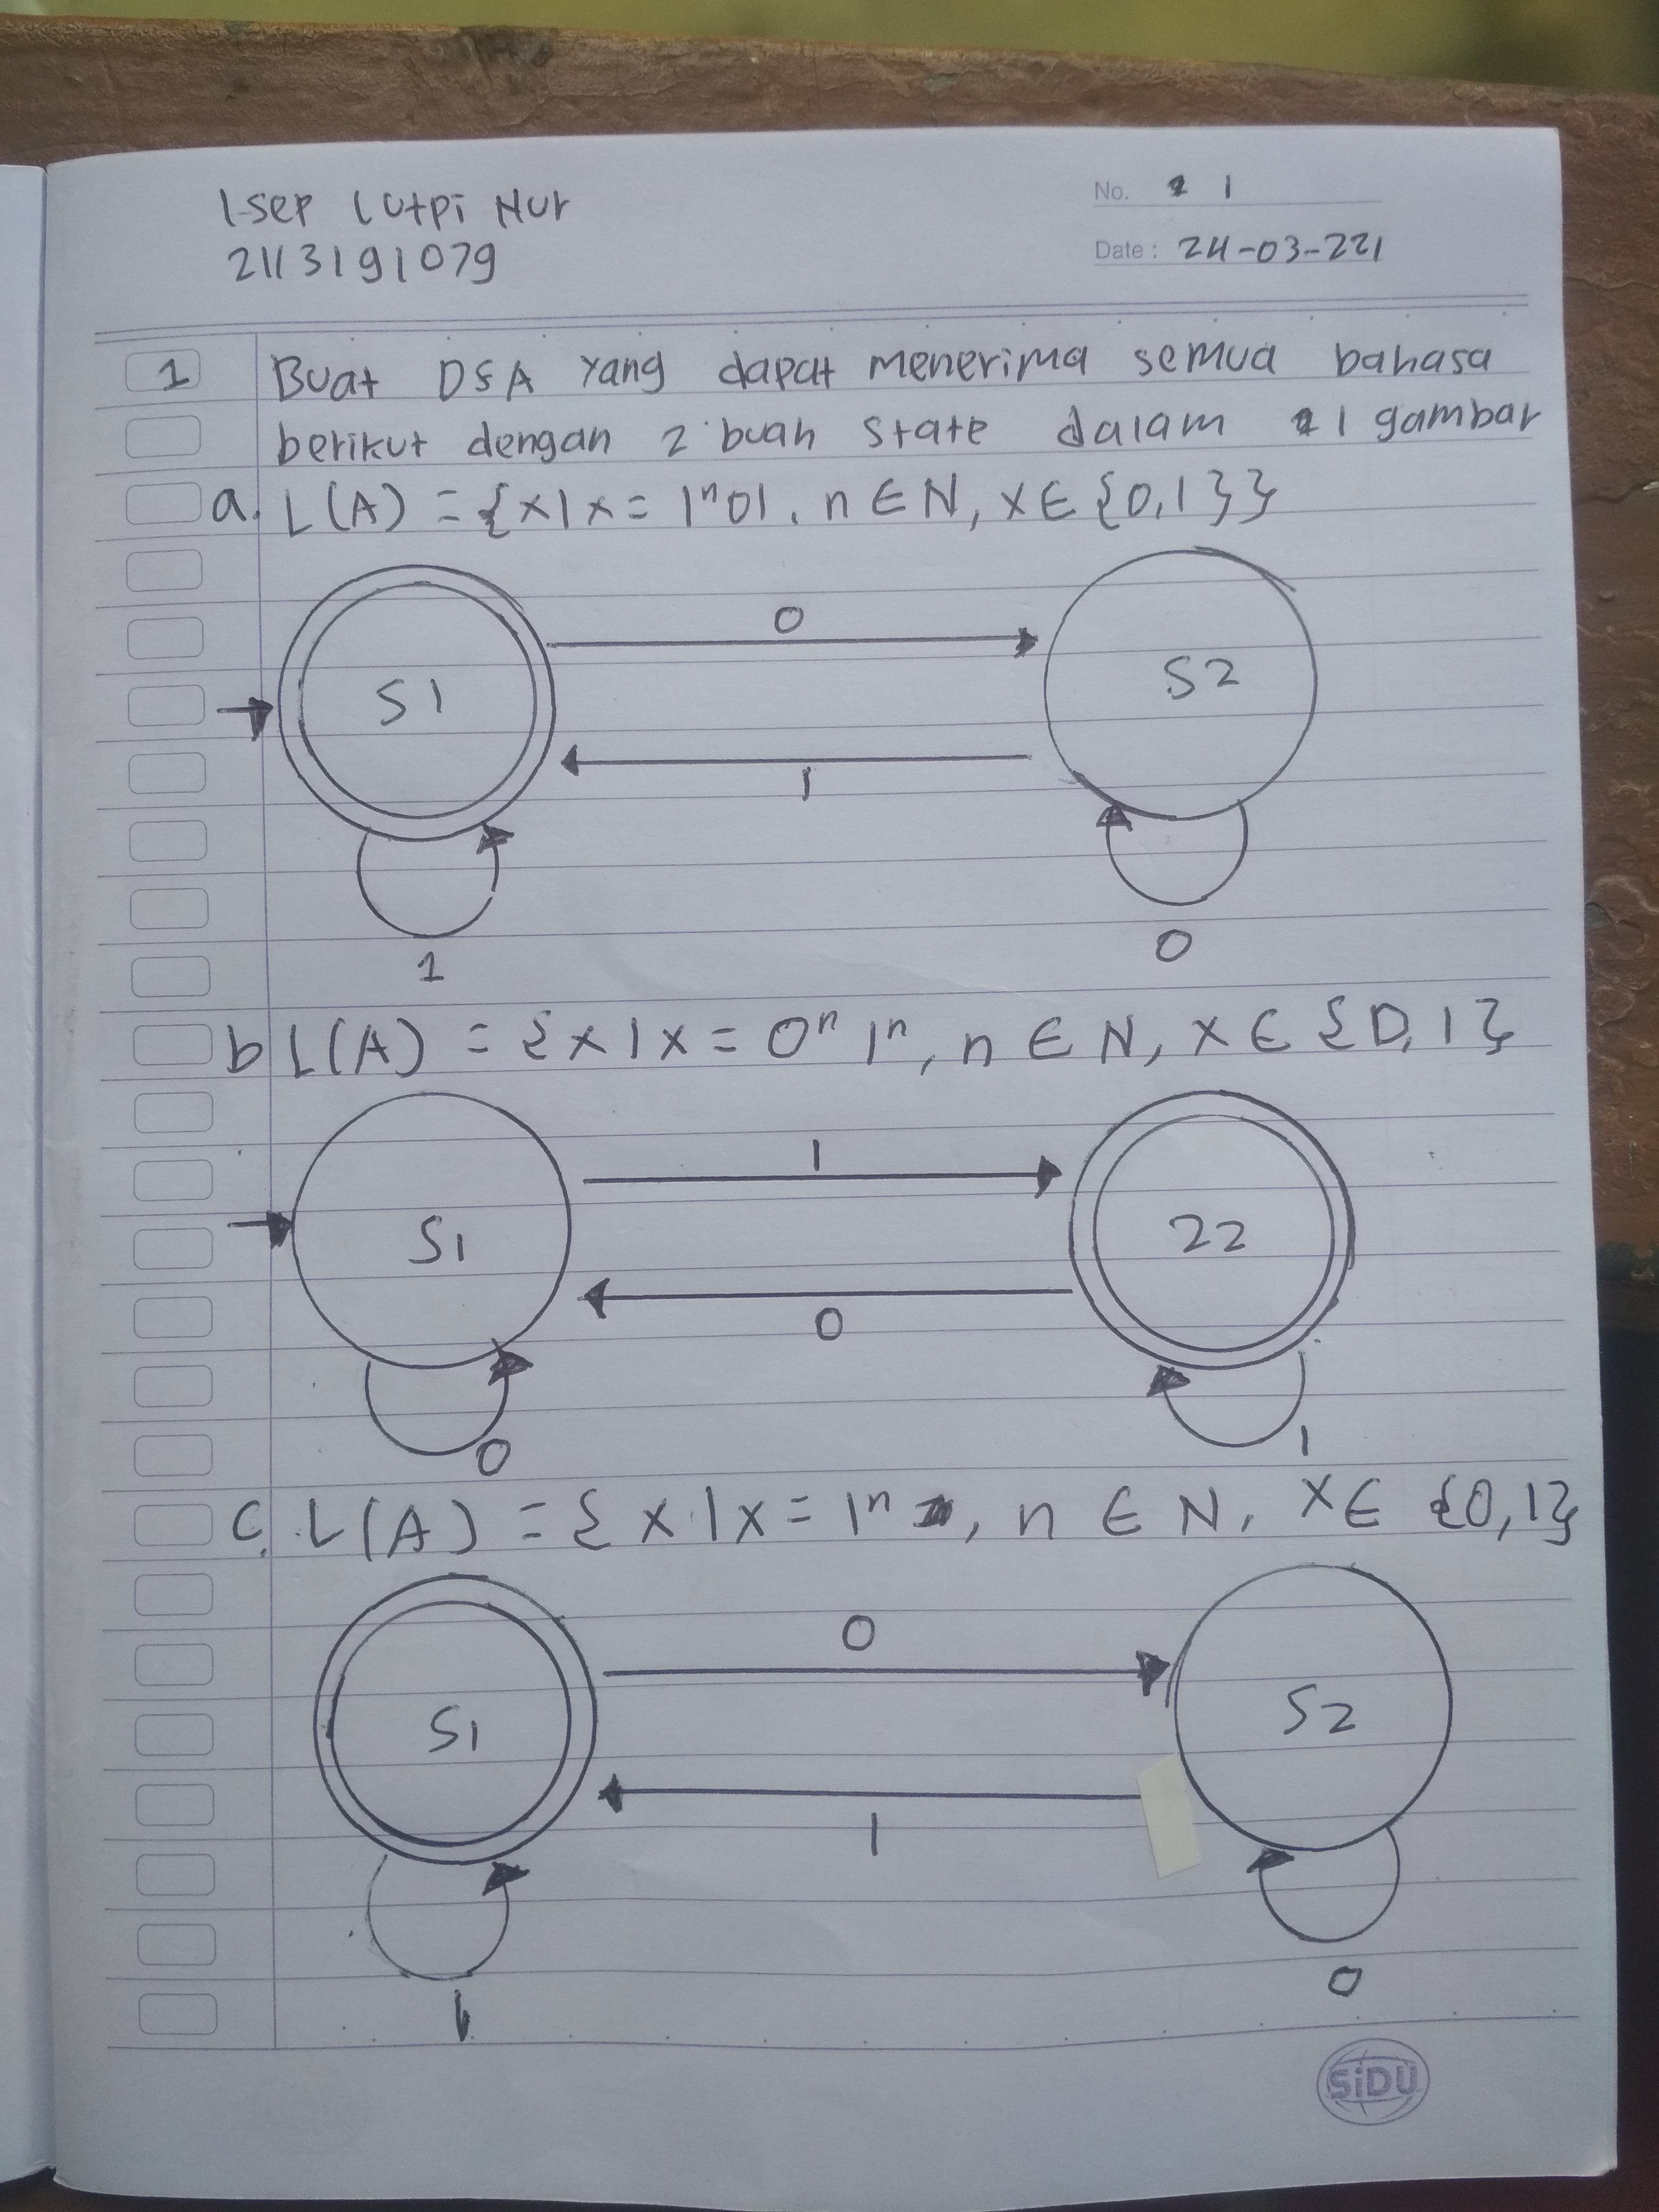 Isep Lutpi Nur
2113191079
No. 1
Date : 24-03-221
1 Buat DSA yang dapat menerima semua bahasa
berikut dengan 2 buah state dalam 1 gambar
a. L(A) = {x|x = 1ⁿ01, n ∈ N, x ∈ {0,1}}
0
S1
S2
1
1
0
b L(A) = {x|x = 0ⁿ 1ⁿ, n ∈ N, x ∈ {0,1}
1
S1
22
0
0
1
c. L(A) = {x|x = 1ⁿ, n ∈ N, x ∈ {0,1}
0
S1
S2
1
1
0
SiDU